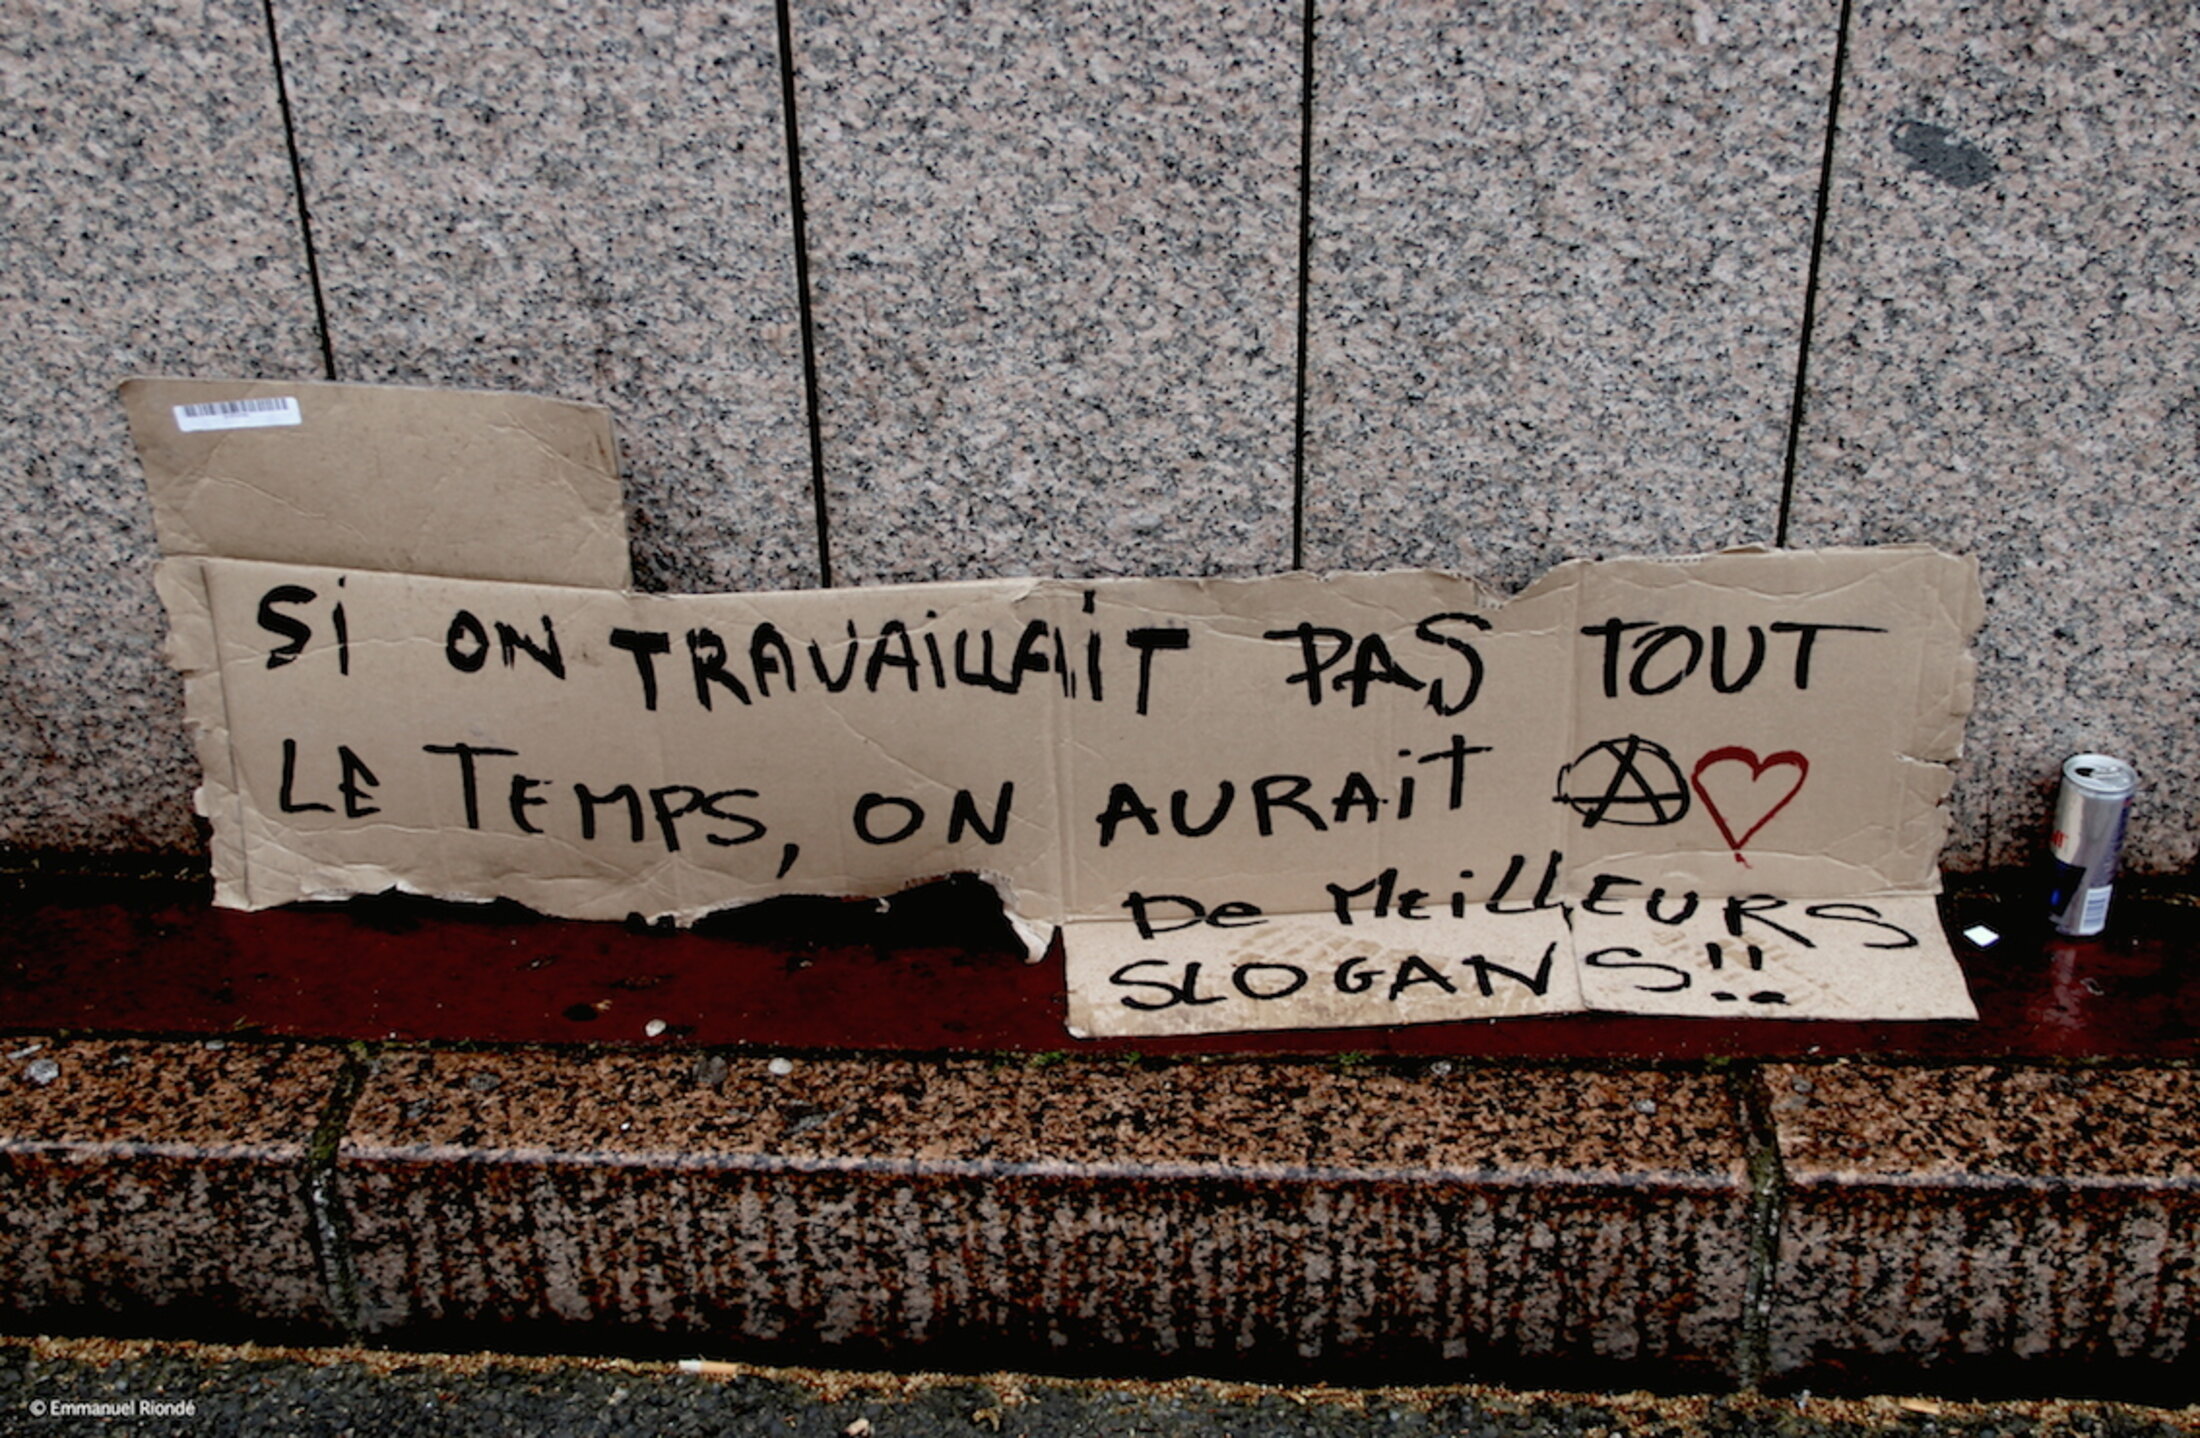 Si ON TRAVAiLLAiT PAS TOUT
LE TEMPS, ON AURAiT
De MEiLLEURS
SLOGANS!!
© Emmanuel Riondé